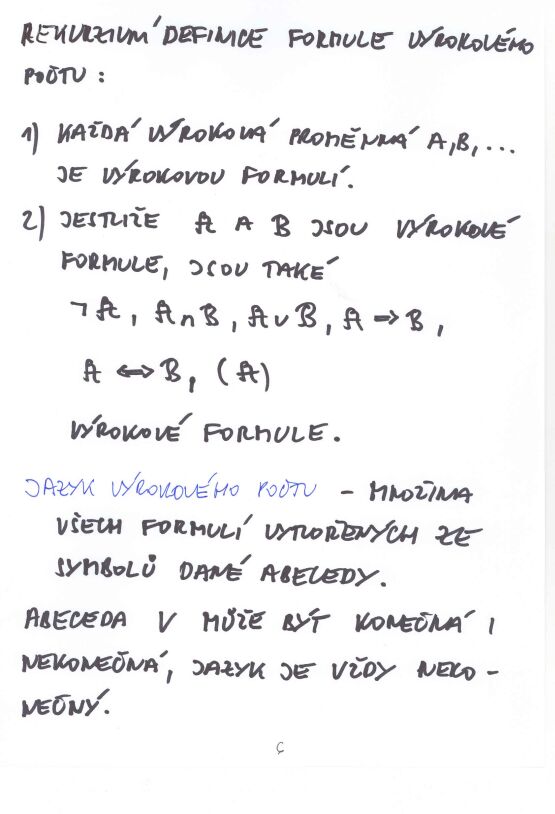 REKURZIVNÍ DEFINICE FORMULE VÝROKOVÉHO
POČTU :
1) KAŽDÁ VÝROKOVÁ PROMĚNNÁ A,B,...
JE VÝROKOVOU FORMULÍ.
2) JESTLIŽE A A B JSOU VÝROKOVÉ
FORMULE, JSOU TAKÉ
¬A, A∩B, A∪B, A ⇒ B,
A ⇔ B, (A)
VÝROKOVÉ FORMULE.
JAZYK VÝROKOVÉHO POČTU – MNOŽINA
VŠECH FORMULÍ VYTVOŘENÝCH ZE
SYMBOLŮ DANÉ ABECEDY.
ABECEDA V MŮŽE BÝT KONEČNÁ I
NEKONEČNÁ, JAZYK JE VŽDY NEKO-
NEČNÝ.